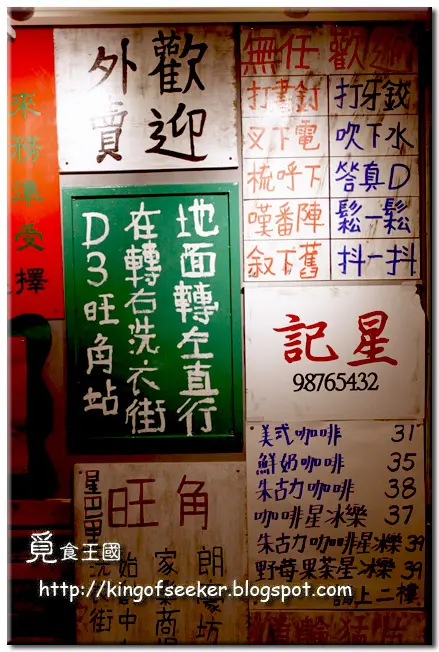 歡迎
外賣
來務準受擇
無任歡迎
打書釘 打牙鉸
叉下電 吹下水
梳呼下 答真D
嘆番陣 鬆一鬆
叙下舊 抖一抖
地面轉左直行
在轉右洗衣街
D3旺角站
記星
98765432
美式咖啡 31
鮮奶咖啡 35
朱古力咖啡 38
咖啡星冰樂 37
朱古力咖啡星冰樂 39
野莓果茶星冰樂 39
請上二樓
旺角
朗豪坊
家樂商
始創中
洗衣街
覓食王國
http://kingofseeker.blogspot.com